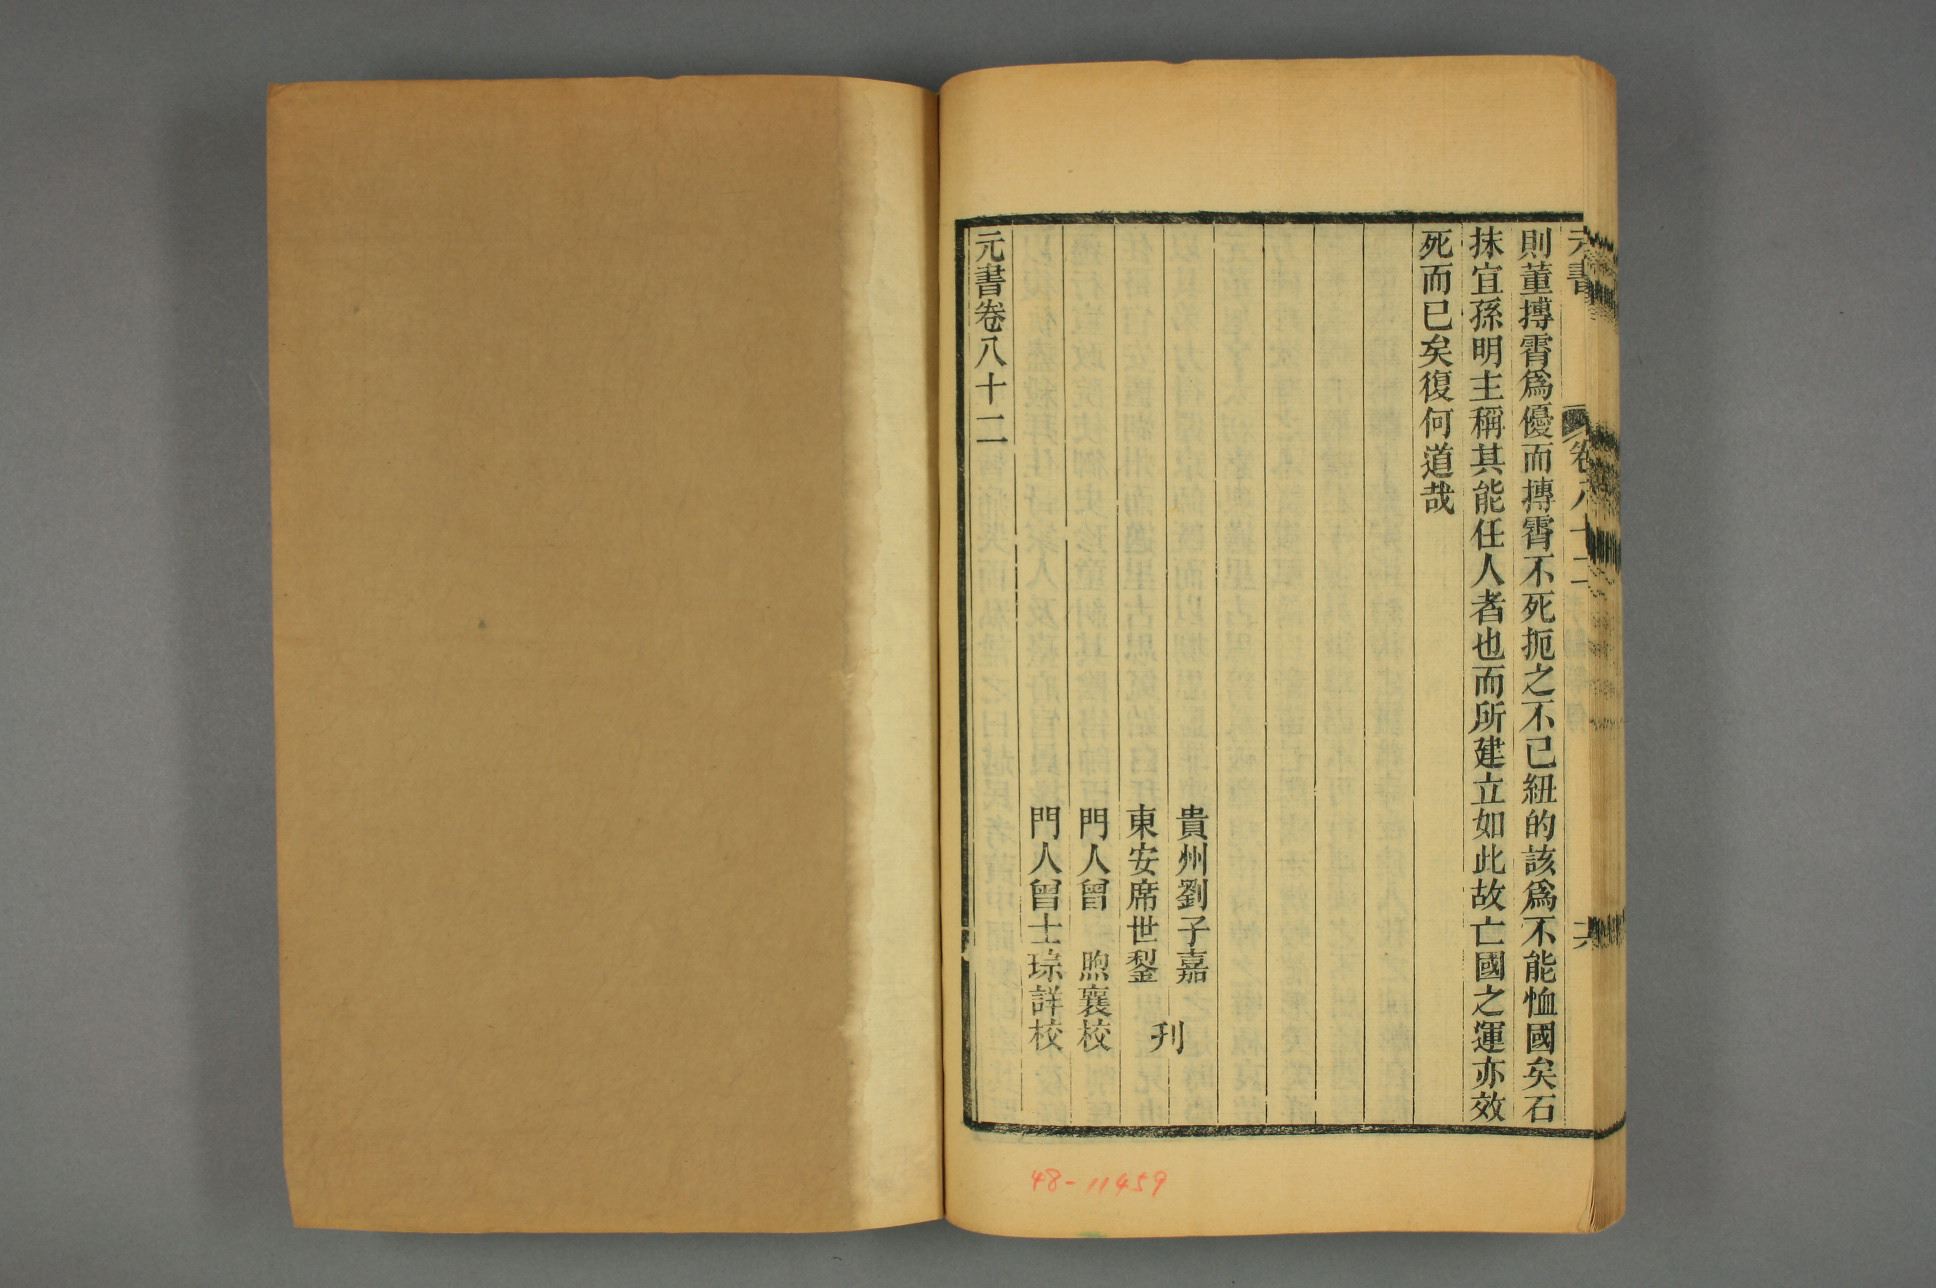 元書
卷八十二
則董摶霄爲優而摶霄不死扼之不已紐的該爲不能恤國矣石
抹宜孫明主稱其能任人者也而所建立如此故亡國之運亦效
死而已矣復何道哉
貴州劉子嘉
東安席世鋆
刋
門人曾 煦襄校
門人曾士琮詳校
元書卷八十二
48-11459